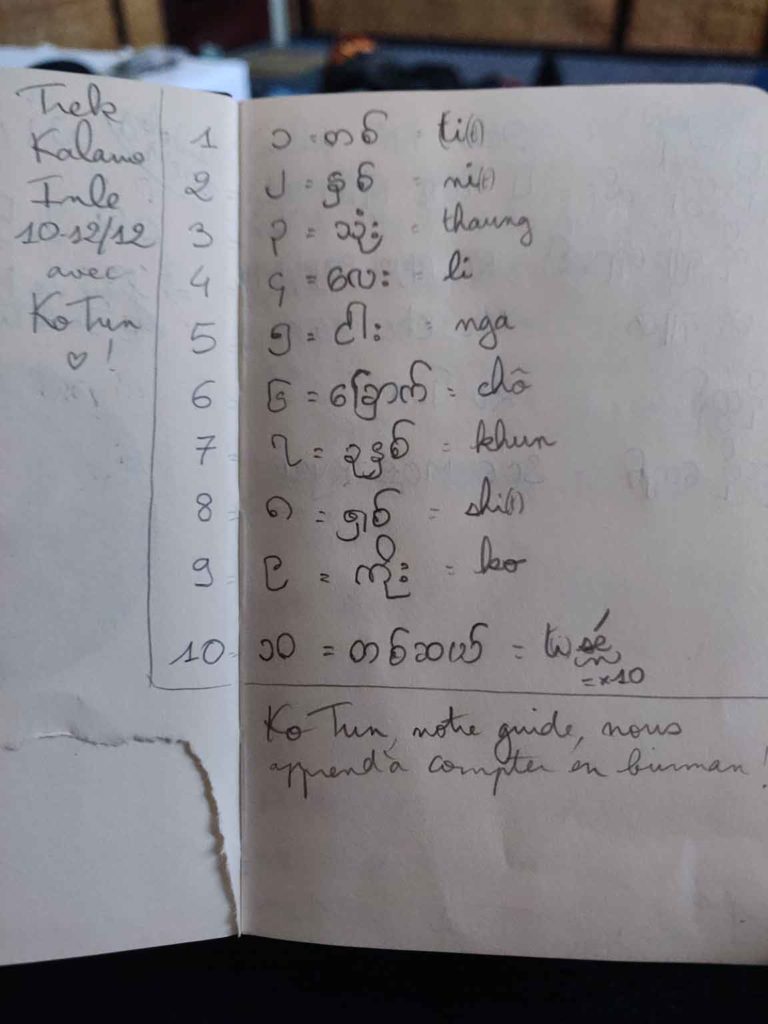 Trek
Kalaw
Inle
10-12/12
avec
Ko Tun
♡!
1 ၁ = တစ် = ti(t)
2 ၂ = နှစ် = ni(t)
3 ၃ = သုံး = thaung
4 ၄ = လေး = li
5 ၅ = ငါး = nga
6 ၆ = ခြောက် = chô
7 ၇ = ခုနှစ် = khun
8 ၈ = ရှစ် = shi(t)
9 ၉ = ကိုး = ko
10 ၁၀ = တစ်ဆယ် = ti sé
= x10
Ko Tun, notre guide, nous
apprend à compter en birman !